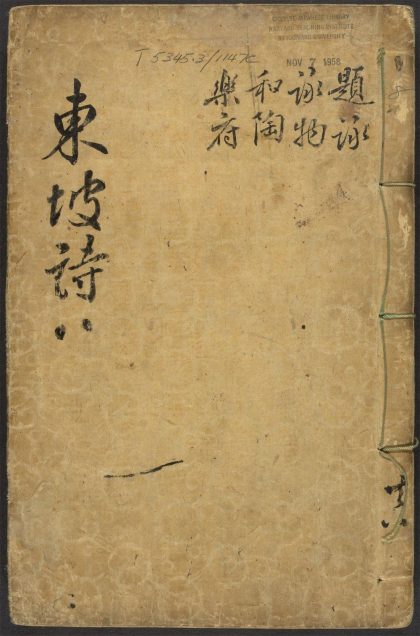 T 5345.3/1147c
CHINESE-JAPANESE LIBRARY
HARVARD-YENCHING INSTITUTE
AT HARVARD UNIVERSITY
NOV 7 1958
題詠
詠物
和陶
樂府
東坡詩八
共八